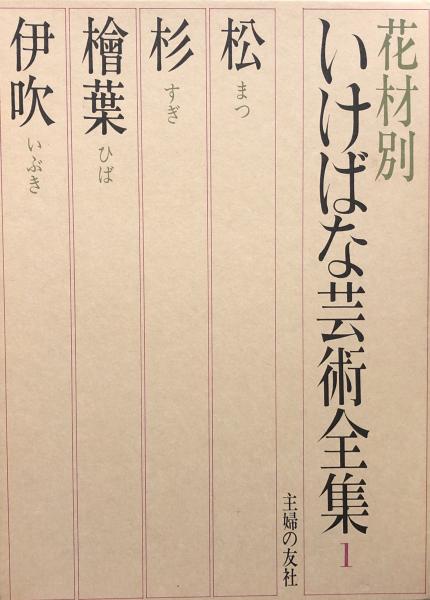 花材別
いけばな芸術全集
1
主婦の友社
松
まつ
杉
すぎ
檜葉
ひば
伊吹
いぶき